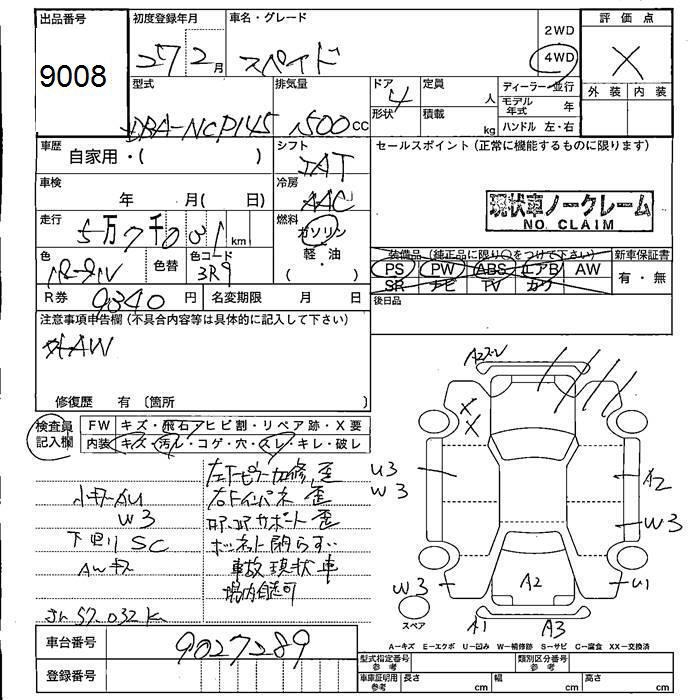 出品番号 初度登録年月 車名・グレード 2WD 評価点
9008 27 2月 スペイド 4WD X
型式 排気量 ドア 4 定員 人 ディーラー・並行 外装 内装
DBA-NCP145 1500cc 形状 積載 kg モデル年式 年
ハンドル 左・右
車歴 自家用・( ) シフト IAT セールスポイント (正常に機能するものに限ります)
車検 年 月( 日) 冷房 AAC 現状車ノークレーム
NO. CLAIM
走行 5万7千031km 燃料 ガソリン
軽・油
( )
色 色替 色コード 3R9
装備品 (純正品に限り○をつけて下さい) 新車保証書
PS PW ABS エアB AW 有・無
SR ナビ TV カワ
R券 9840円 名変期限 月 日 後日品
注意事項申告欄 (不具合内容等は具体的に記入して下さい)
社外AW
修復歴 有 〔箇所 〕
検査員記入欄 FW キズ・飛石・ヒビ割・リペア跡・X要
内装 キズ・汚レ・コゲ・穴・スレ・キレ・破レ
左下ピラー加修 歪
小キズAU 右下インパネ 歪
W3 コアサポート 歪
下回り SC ボンネット閉らず
AWキズ 事故現状車
場内自走可
57.032K
A2
U3
W3
A2
W3
W3
A2
U1
スペア
A1 A3
A−キズ E−エクボ U−凹み W−補修跡 S−サビ C−腐食 XX−交換済
車台番号 9027289
登録番号
型式指定番号 参考 類別区分番号 参考
車庫証明用 参考 長さ cm 幅 cm 高さ cm